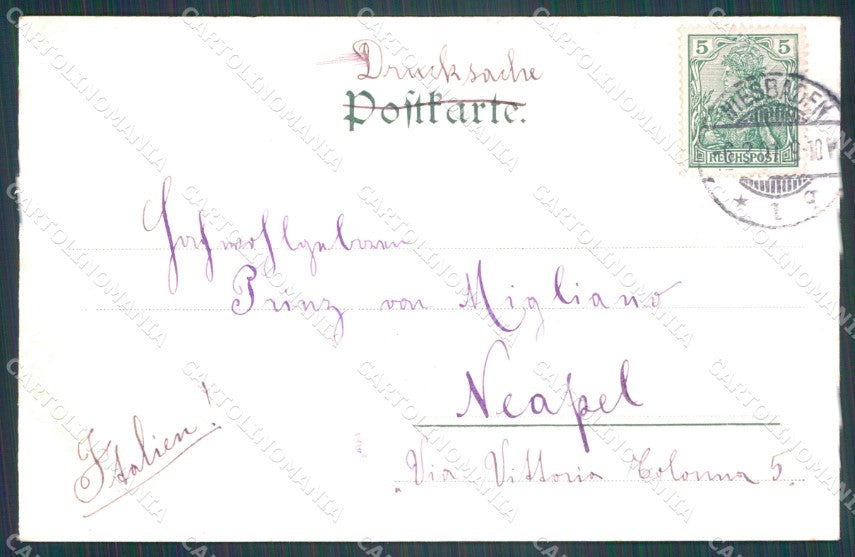 Drucksache
Postkarte.
5 5
REICHSPOST
WIESBADEN
* 1 g
Hochwohlgeboren
Prinz von Migliano
Neapel
Italien!
Via Vittoria Colonna 5.
CARTOLINOMANIA